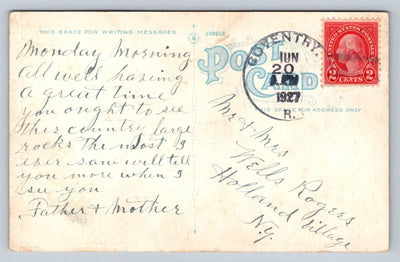 THIS SPACE FOR WRITING MESSAGES
Monday Morning
All well having
a great time
you ought to see
this country large
rocks the most I
ever saw will tell
you more when I
see you
Father + Mother
POST
CARD
THIS SPACE FOR ADDRESS ONLY
COVENTRY.
JUN
20
1927
R.I.
UNITED STATES POSTAGE
2 CENTS 2
Mr + Mrs
Wells Rogers
Holland Village
N.Y.